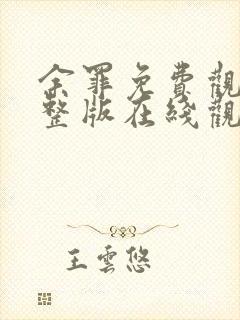 余罪免費觀
整版在线觀
王雲悠